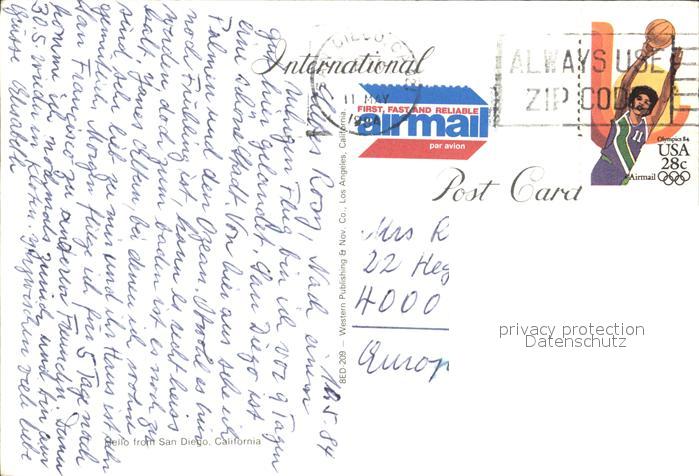 International
SAN DIEGO, CA
11 MAY
1984
ALWAYS USE
ZIP CODE
FIRST, FAST AND RELIABLE
airmail
par avion
Olympics 84
USA
28c
Airmail
11
Post Card
Mrs R
22 Heg
4000
Europ
privacy protection
Datenschutz
8ED-209 — Western Publishing & Nov. Co., Los Angeles, California.
Hello from San Diego, California
10.5.84
Liebes Rosy, Nach einem
ruhigen Flug bin ich vor 9 Tagen
gut hier gelandet. San Diego ist
eine schöne Stadt. Von hier aus sehe ich
Palmen und den Ozean. Obwohl es hier
noch Frühling ist, kann es recht heiss
werden doch zum baden ist es noch zu
kalt. Die Eltern, bei denen ich wohne
sind sehr lieb zu mir und ihr Haus ist
gemütlich. Morgen fliege ich für 5 Tage nach
San Francisco zu anderer Familie. Dann
komme ich nochmals zurück und bin am
30.5. wieder in Kloten. Inzwischen viele liebe
Grüsse